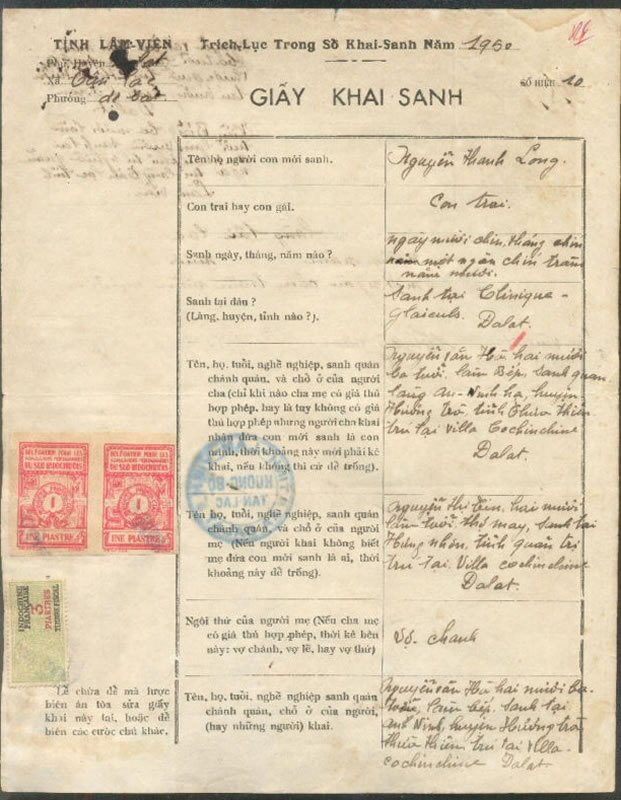 TỈNH LÂM-VIÊN Trích-Lục Trong Sổ Khai-Sanh Năm 1950
Xã
Phường
SỐ HIỆU 10
GIẤY KHAI SANH
Tên họ người con mới sanh.
Nguyễn Thanh Long.
Con trai hay con gái.
Con trai.
Sanh ngày, tháng, năm nào ?
ngày mười chín, tháng chín
năm một ngàn chín trăm
năm mươi.
Sanh tại đâu ?
(Làng, huyện, tỉnh nào ?).
Sanh tại Clinique
Dalat.
Tên, họ, tuổi, nghề nghiệp, sanh quán
chánh quán, và chỗ ở của người
cha (chỉ khi nào cha mẹ có giá thú
hợp phép, hay là tuy không có giá
thú hợp phép nhưng người cha khai
nhận đứa con mới sanh là con
mình, thời khoảng này mới phải kê
khai, nếu không thì cứ để trống).
Nguyễn văn Hà hai mươi
ba tuổi, làm Bếp, sanh quán
làng An-Ninh hạ, huyện
Hương Trà, tỉnh Thừa Thiên
trú tại Villa Cochinchine
Dalat.
Tên, họ, tuổi, nghề nghiệp, sanh quán
chánh quán, và chỗ ở của người
mẹ (Nếu người khai không biết
mẹ đứa con mới sanh là ai, thời
khoảng này để trống).
Nguyễn thị hai mươi
lăm tuổi thợ may, sanh tại
Hưng nhơn, tỉnh quản trị
trú tại Villa cochinchine
Dalat.
Ngôi thứ của người mẹ (Nếu cha mẹ
có giá thú hợp phép, thời kê bên
này: vợ chánh, vợ lẽ, hay vợ thứ)
Vợ chánh
Tên, họ, tuổi, nghề nghiệp sanh quán
chánh quán, chỗ ở của người,
(hay những người) khai.
Nguyễn văn Hà hai mươi ba
tuổi, làm bếp, sanh tại
anh Ninh, huyện Hương trà
thừa thiên trú tại Villa
cochinchine Dalat.
Lề chừa để mà lược
biên án tòa sửa giấy
khai này tại, hoặc để
biên các cước chú khác.
DU SUD INDOCHINOIS
1
UNE PIASTRE
DU SUD INDOCHINOIS
1
UNE PIASTRE
INDOCHINE
FRANÇAISE
PIASTRES
TIMBRE FISCAL